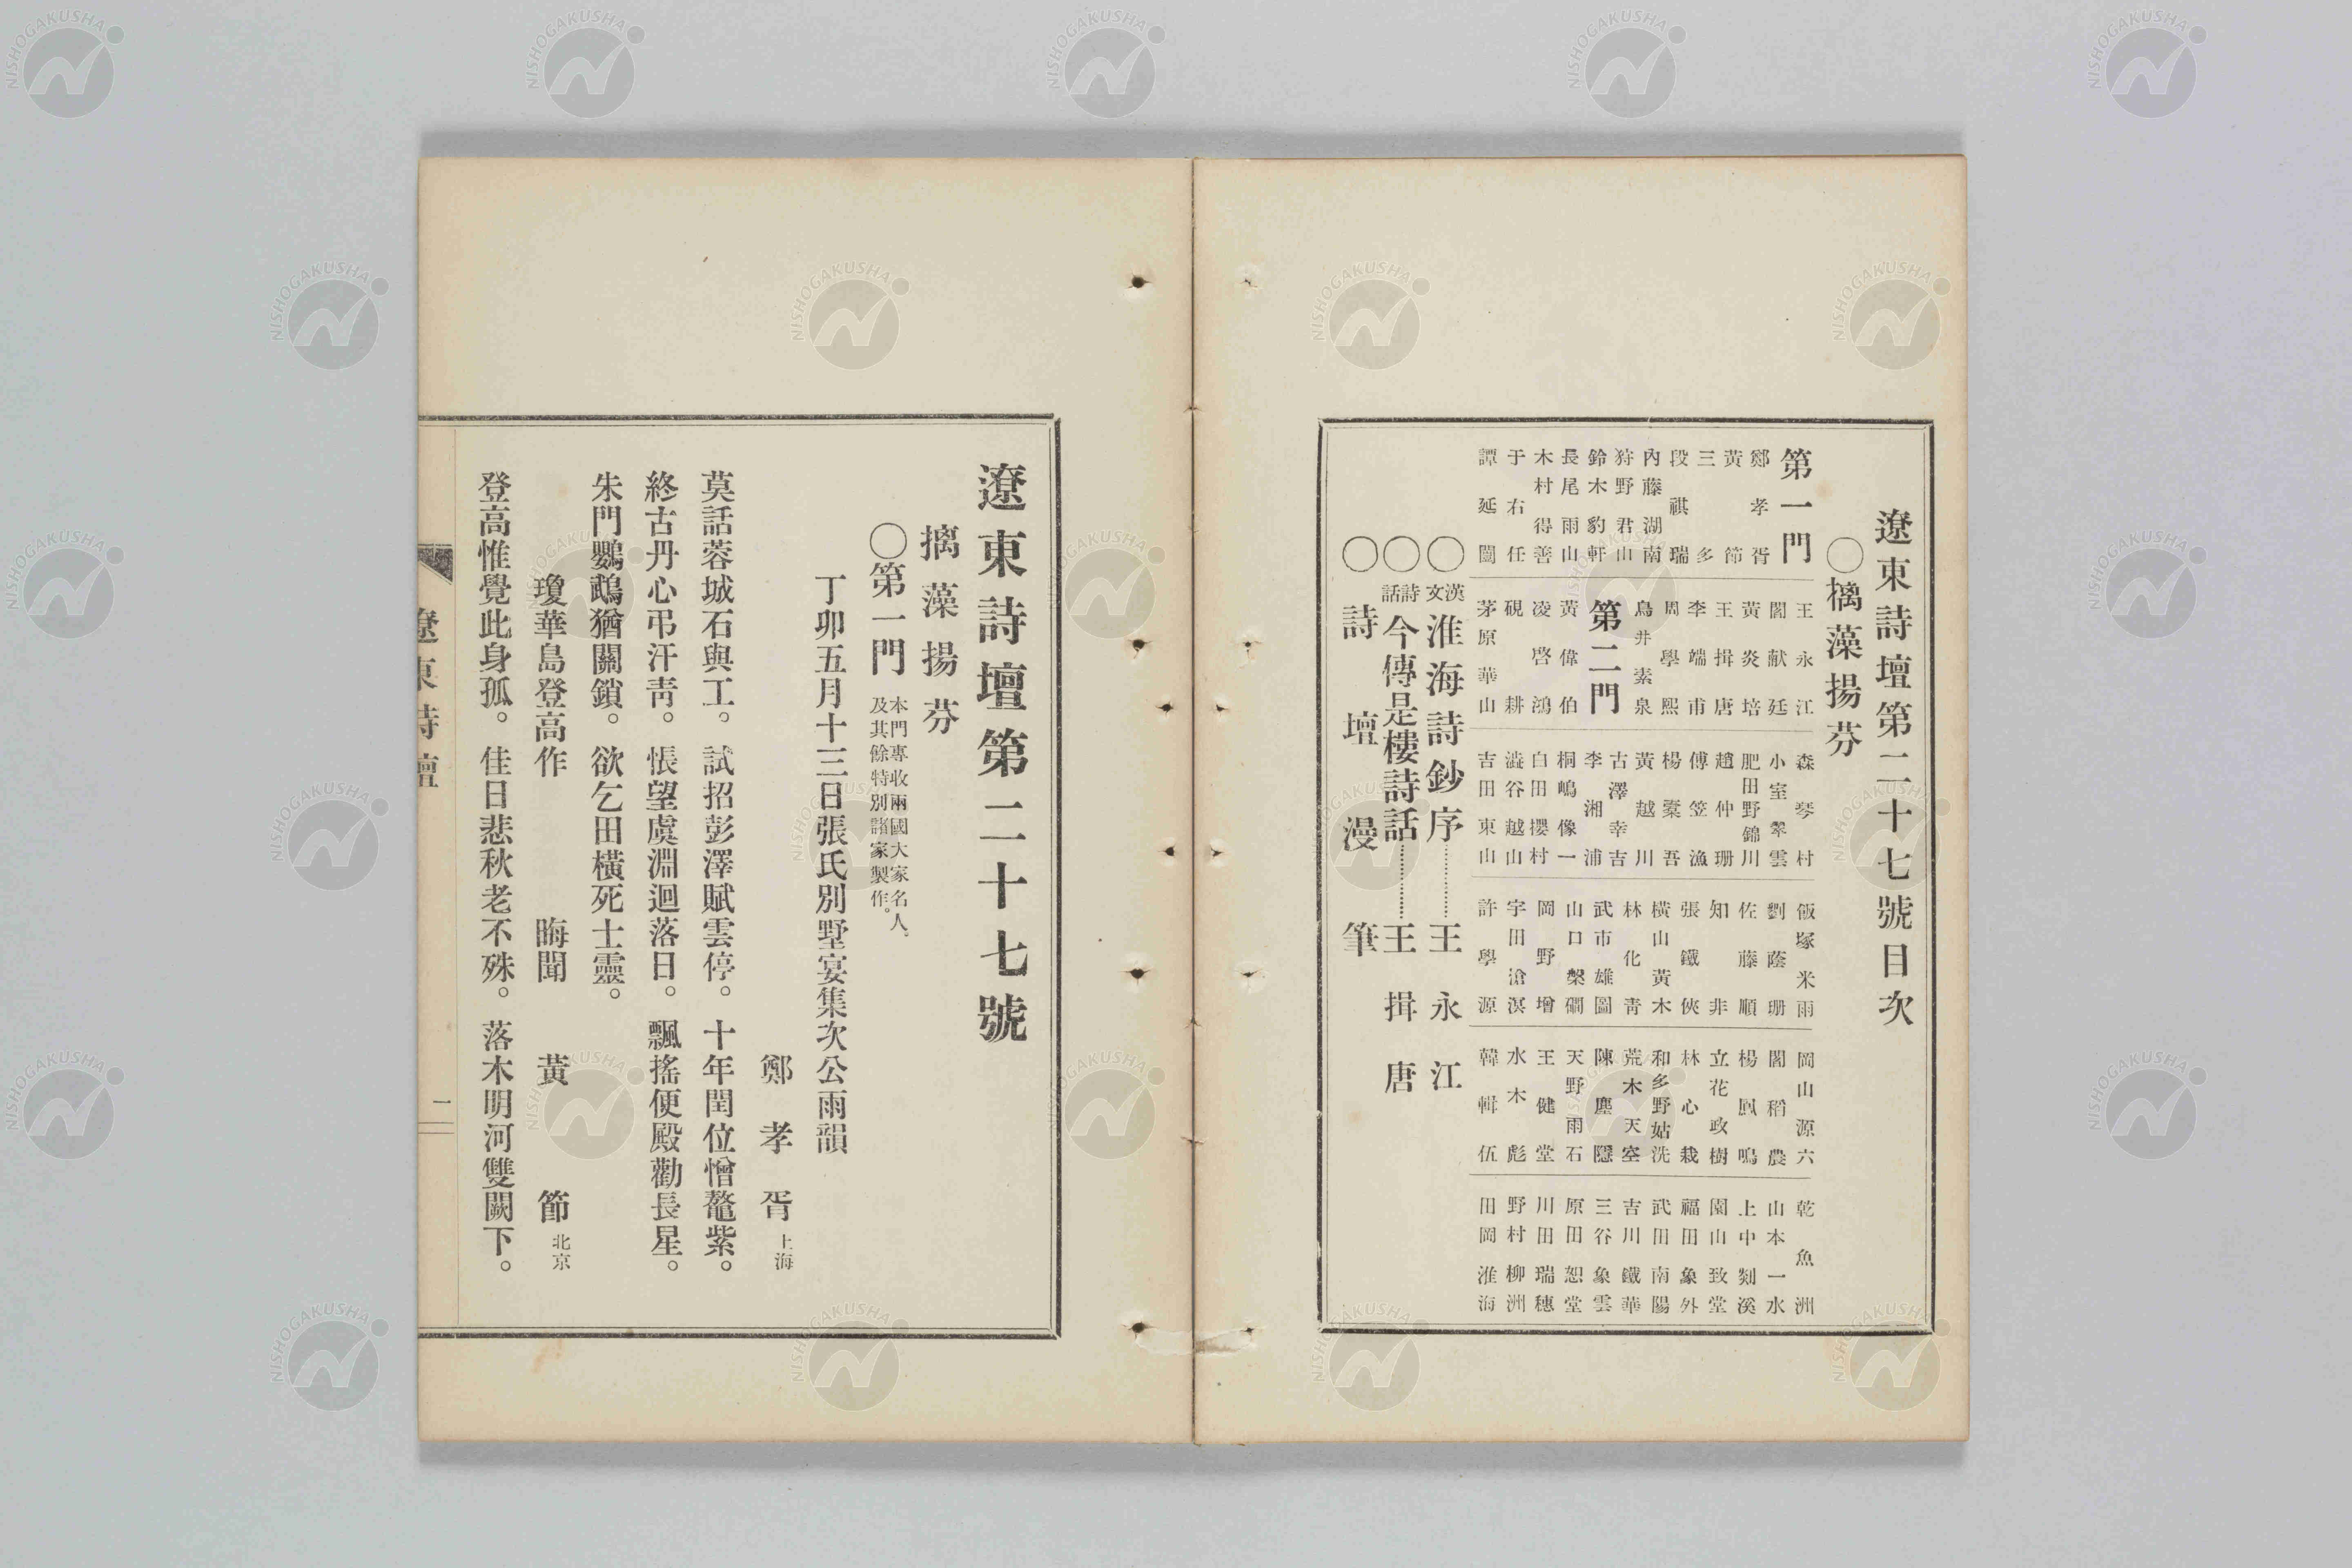 遼東詩壇第二十七號目次
○摛藻揚芬
第一門
鄭孝胥
黃節
三多
段祺瑞
內藤湖南
狩野君山
鈴木豹軒
長尾雨山
木村得善
于右任
譚延闓
王永江
閻献廷
黃炎培
王揖唐
李端甫
周學熙
鳥井素泉
第二門
黃偉伯
凌啓鴻
硯耕
茅原華山
森琴村
小室翠雲
肥田野錦川
趙仲珊
傅笠漁
楊槖吾
黃越川
古澤幸吉
李湘浦
桐嶋像一
白田櫻村
澁谷越山
吉田東山
飯塚米雨
劉蔭珊
佐藤順
知非
張鐵俠
橫山黃木
林化靑
武市雄圖
山口槃礀
岡野增
宇田滄溟
許學源
岡山源六
閻稻農
楊鳳鳴
立花政樹
林心栽
和多野姑洗
荒木天空
陳塵隱
天野雨石
王健堂
水木彪
韓輯伍
乾魚洲
山本一水
上中剡溪
園山致堂
福田象外
武田南陽
吉川鐵華
三谷象雲
原田恕堂
川田瑞穗
野村柳洲
田岡淮海
○漢文 淮海詩鈔序………王永江
○詩話 今傳是樓詩話………王揖唐
○詩壇漫筆
遼東詩壇第二十七號
摛藻揚芬
○第一門 本門專收兩國大家名人。及其餘特別諸家製作。
丁卯五月十三日張氏別墅宴集次公雨韻
鄭孝胥 上海
莫話蓉城石與工。試招彭澤賦雲停。十年閏位憎鼇紫。
終古丹心弔汗靑。悵望虞淵迴落日。飄搖便殿勸長星。
朱門鸚鵡猶關鎖。欲乞田橫死士靈。
瓊華島登高作 晦聞 黃節 北京
登高惟覺此身孤。佳日悲秋老不殊。落木明河雙闕下。
遼東詩壇
一
NISHOGAKUSHA